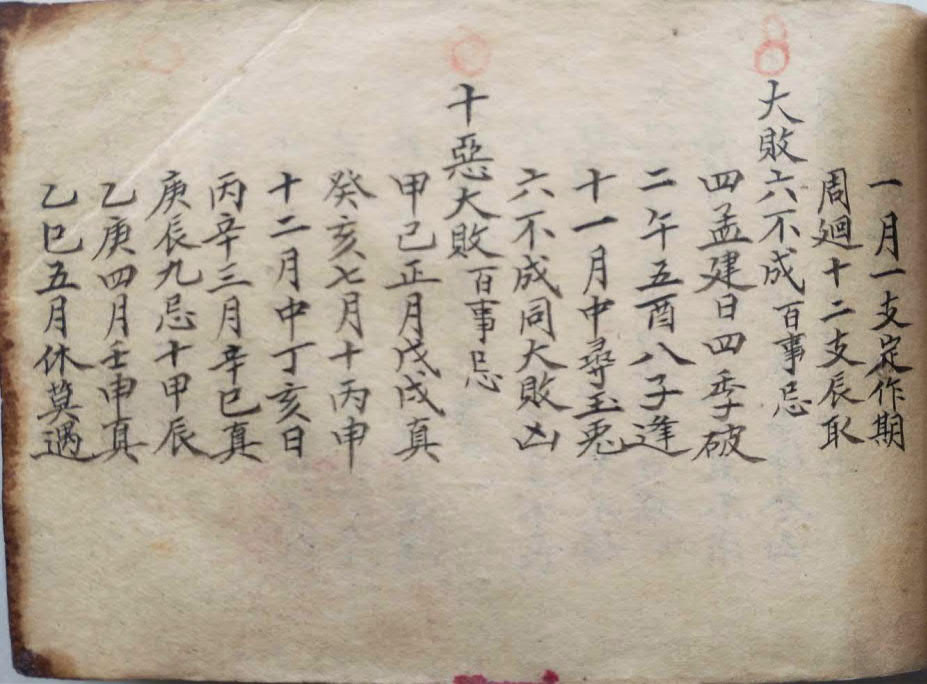 一月一支定作期
周廻十二支辰取
大敗六不成百事忌
四孟建日四季破
二午五酉八子逢
十一月中尋玉兎
六不成同大敗凶
十惡大敗百事忌
甲己正月戊戌真
癸亥七月十丙申
十二月中丁亥日
丙辛三月辛巳真
庚辰九忌十甲辰
乙庚四月壬申真
乙巳五月休莫遇